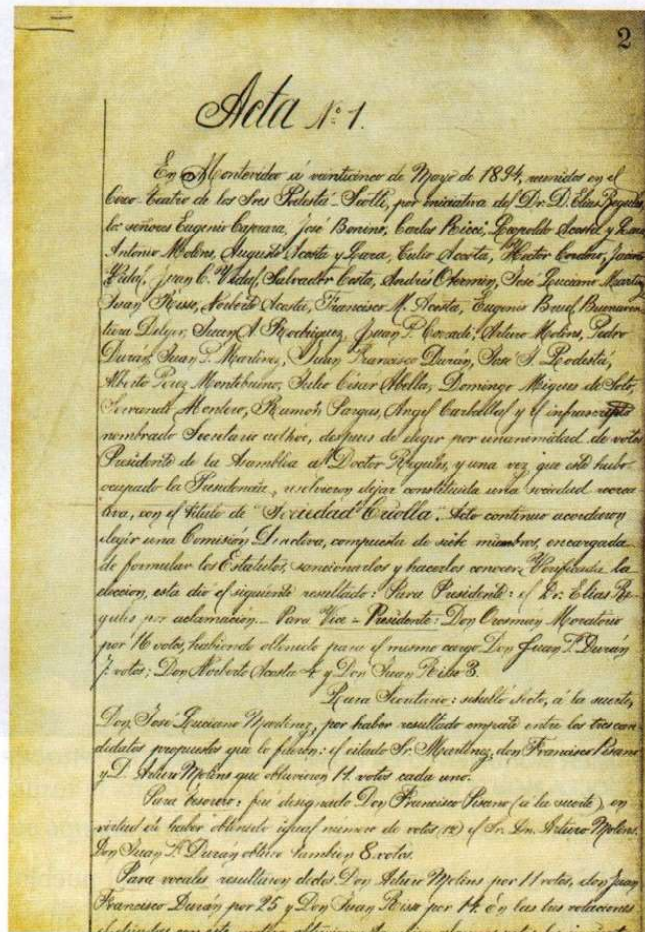 2
Acta Nº 1.
En Montevideo á veinticinco de Mayo de 1894, reunidos en el
Circo-Teatro de los Sres Podestá-Scotti, por iniciativa del Dr. D. Elías Regules,
los señores Eugenio Caprara, José Bonino, Carlos Ricci, Leopoldo Acosta y Lara,
Antonio Molins, Augusto Acosta y Lara, Tulio Acosta, Héctor Cordero, Jaime
Vidal, Juan C. Vidal, Salvador Costa, Andrés José Luciano Martínez
Juan Risso, Norberto Acosta, Francisco M. Acosta, Eugenio Buenaven
tura Juan A. Rodriguez, Juan P. Arturo Molins, Pedro
Durán, Juan P. Martinez, Juan Francisco Durán, José J. Podestá,
Alberto Perez Montebruno, Julio César Abella, Domingo Miguez de Soto,
Servando Montero, Ramón Angel y el infrascripto
nombrado Secretario adhoc, despues de elegir por unanimidad de votos
Presidente de la Asamblea al Doctor Regules, y una vez que este hubo
ocupado la Presidencia, resolvieron dejar constituida una sociedad recrea
tiva, con el título de "Sociedad Criolla". Acto continuo acordaron
elegir una Comisión Directiva, compuesta de siete miembros, encargada
de formular los Estatutos, sancionarlos y hacerlos conocer. Verificada la
eleccion, esta dió el siguiente resultado: Para Presidente: el Dr. Elías Re-
gules por aclamación. Para Vice-Presidente: Don Orosmán Moratorio
por 16 votos, habiendo obtenido para el mismo cargo Don Juan P. Durán
7 votos; Don Norberto Acosta 4 y Don Juan Risso 3.
Para Secretario: resultó electo, á la suerte,
Don José Luciano Martinez, por haber resultado empate entre los tres can
didatos propuestos que lo fueron: el citado Sr. Martinez, don Francisco Pisano
y D. Arturo Molins que obtuvieron 11 votos cada uno.
Para tesorero: fué designado Don Francisco Pisano (á la suerte) en
virtud de haber obtenido igual número de votos el Sr. Dn. Arturo Molins.
Don Juan P. Durán obtuvo tambien 8 votos.
Para vocales resultaron electos Don Arturo Molins por 11 votos, don Juan
Francisco Durán por 25 y Don Juan Risso por 14. En las tres votaciones